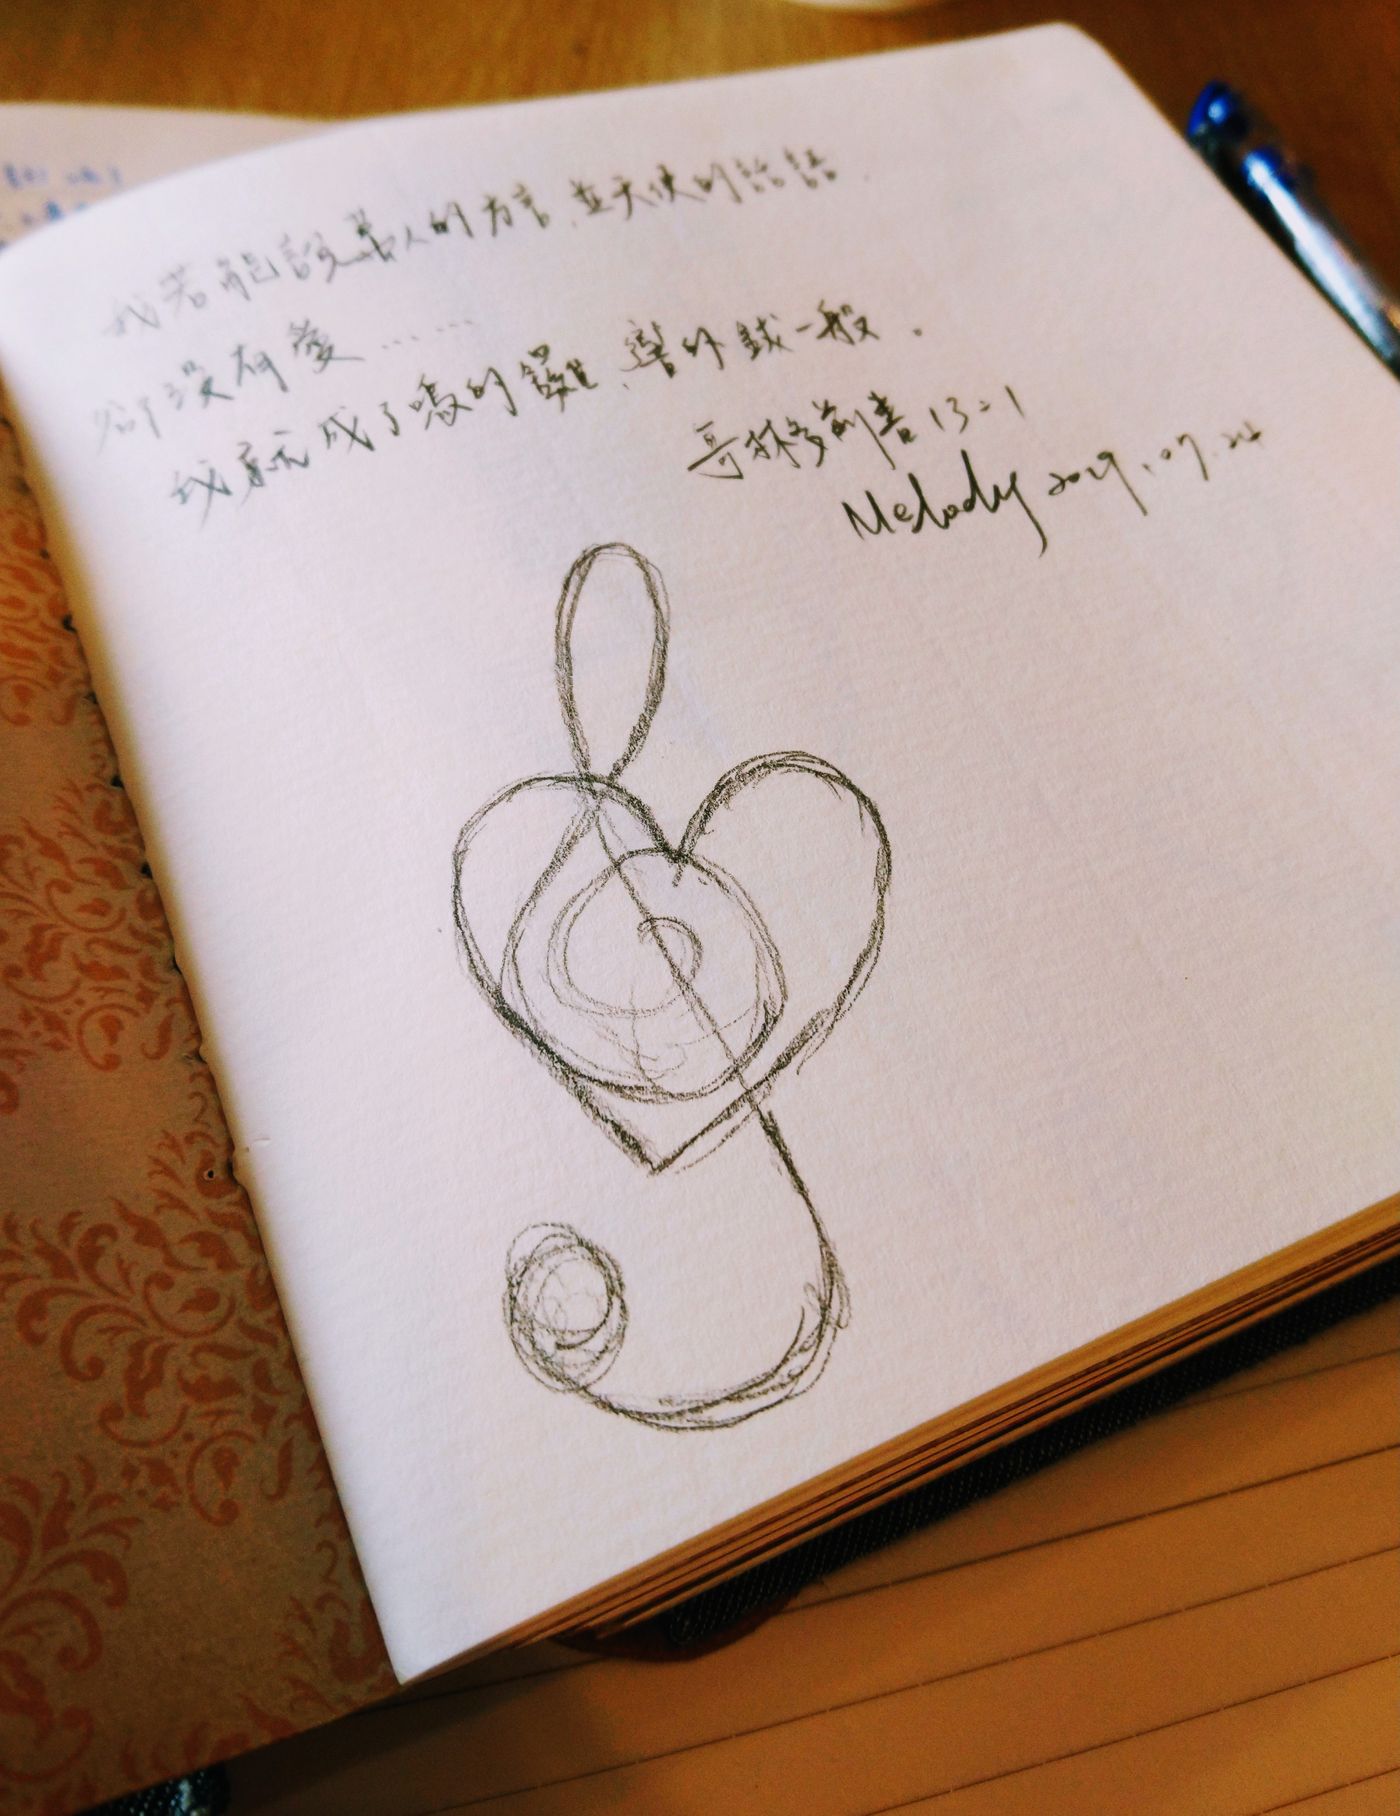 我若能說萬人的方言、並天使的話語、
卻沒有愛……
我就成了鳴的鑼、響的鈸一般。
哥林多前書13:1
Melody 2019.07.24